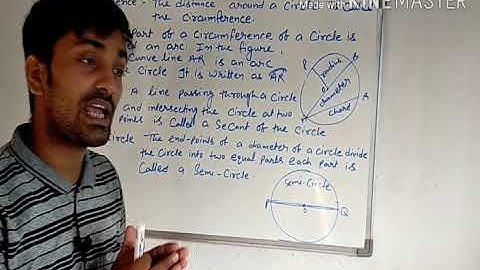 Made with KINEMASTER
ence - The distance around a Circle
the Circumference.
Part of a Circumference of a Circle is
an arc. In the figure,
Curve line AR is an arc
the Circle It is written as AR
A line passing through a Circle
and intersecting the Circle at two
points is Called a Secant of the Circle
circle - The end-points of a diameter of a circle divide
the Circle into two equal parts each part is
Called a Semi-Circle.
P
diameter
chord
B
Semi-Circle
P
O
Q